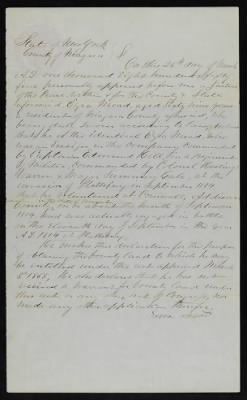 State of New York
County of Niagara } On this 26th day of March
A.D. one thousand Eight hundred & fifty
four personally appeared before me a Justice
of the Peace within & for the County & State
aforesaid Ezra Mead aged Sixty Nine years
a resident of Niagara County aforesaid, who
being duly Sworn according to law, declares
that he is the identical Ezra Mead who
was an Ensign in the Company commanded
by Captain Edmund B. Hill in a Regiment
of Militia Commanded by
at the
invasion of Plattsburg in September 1814
that he volunteered at Cornwall, Addison
County on or about the month of September
1814 and was actually engaged in battle
on the eleventh day of September in the year
A.D. 1814 at Plattsburg
He makes this declaration for the purpose
of obtaining the bounty land to which he may
be entitled under the act approved March
3d 1855. He also declares that he has not
received a warrant for bounty land under
this act or any other act of Congress, nor
made any other application therefor
Ezra Mead